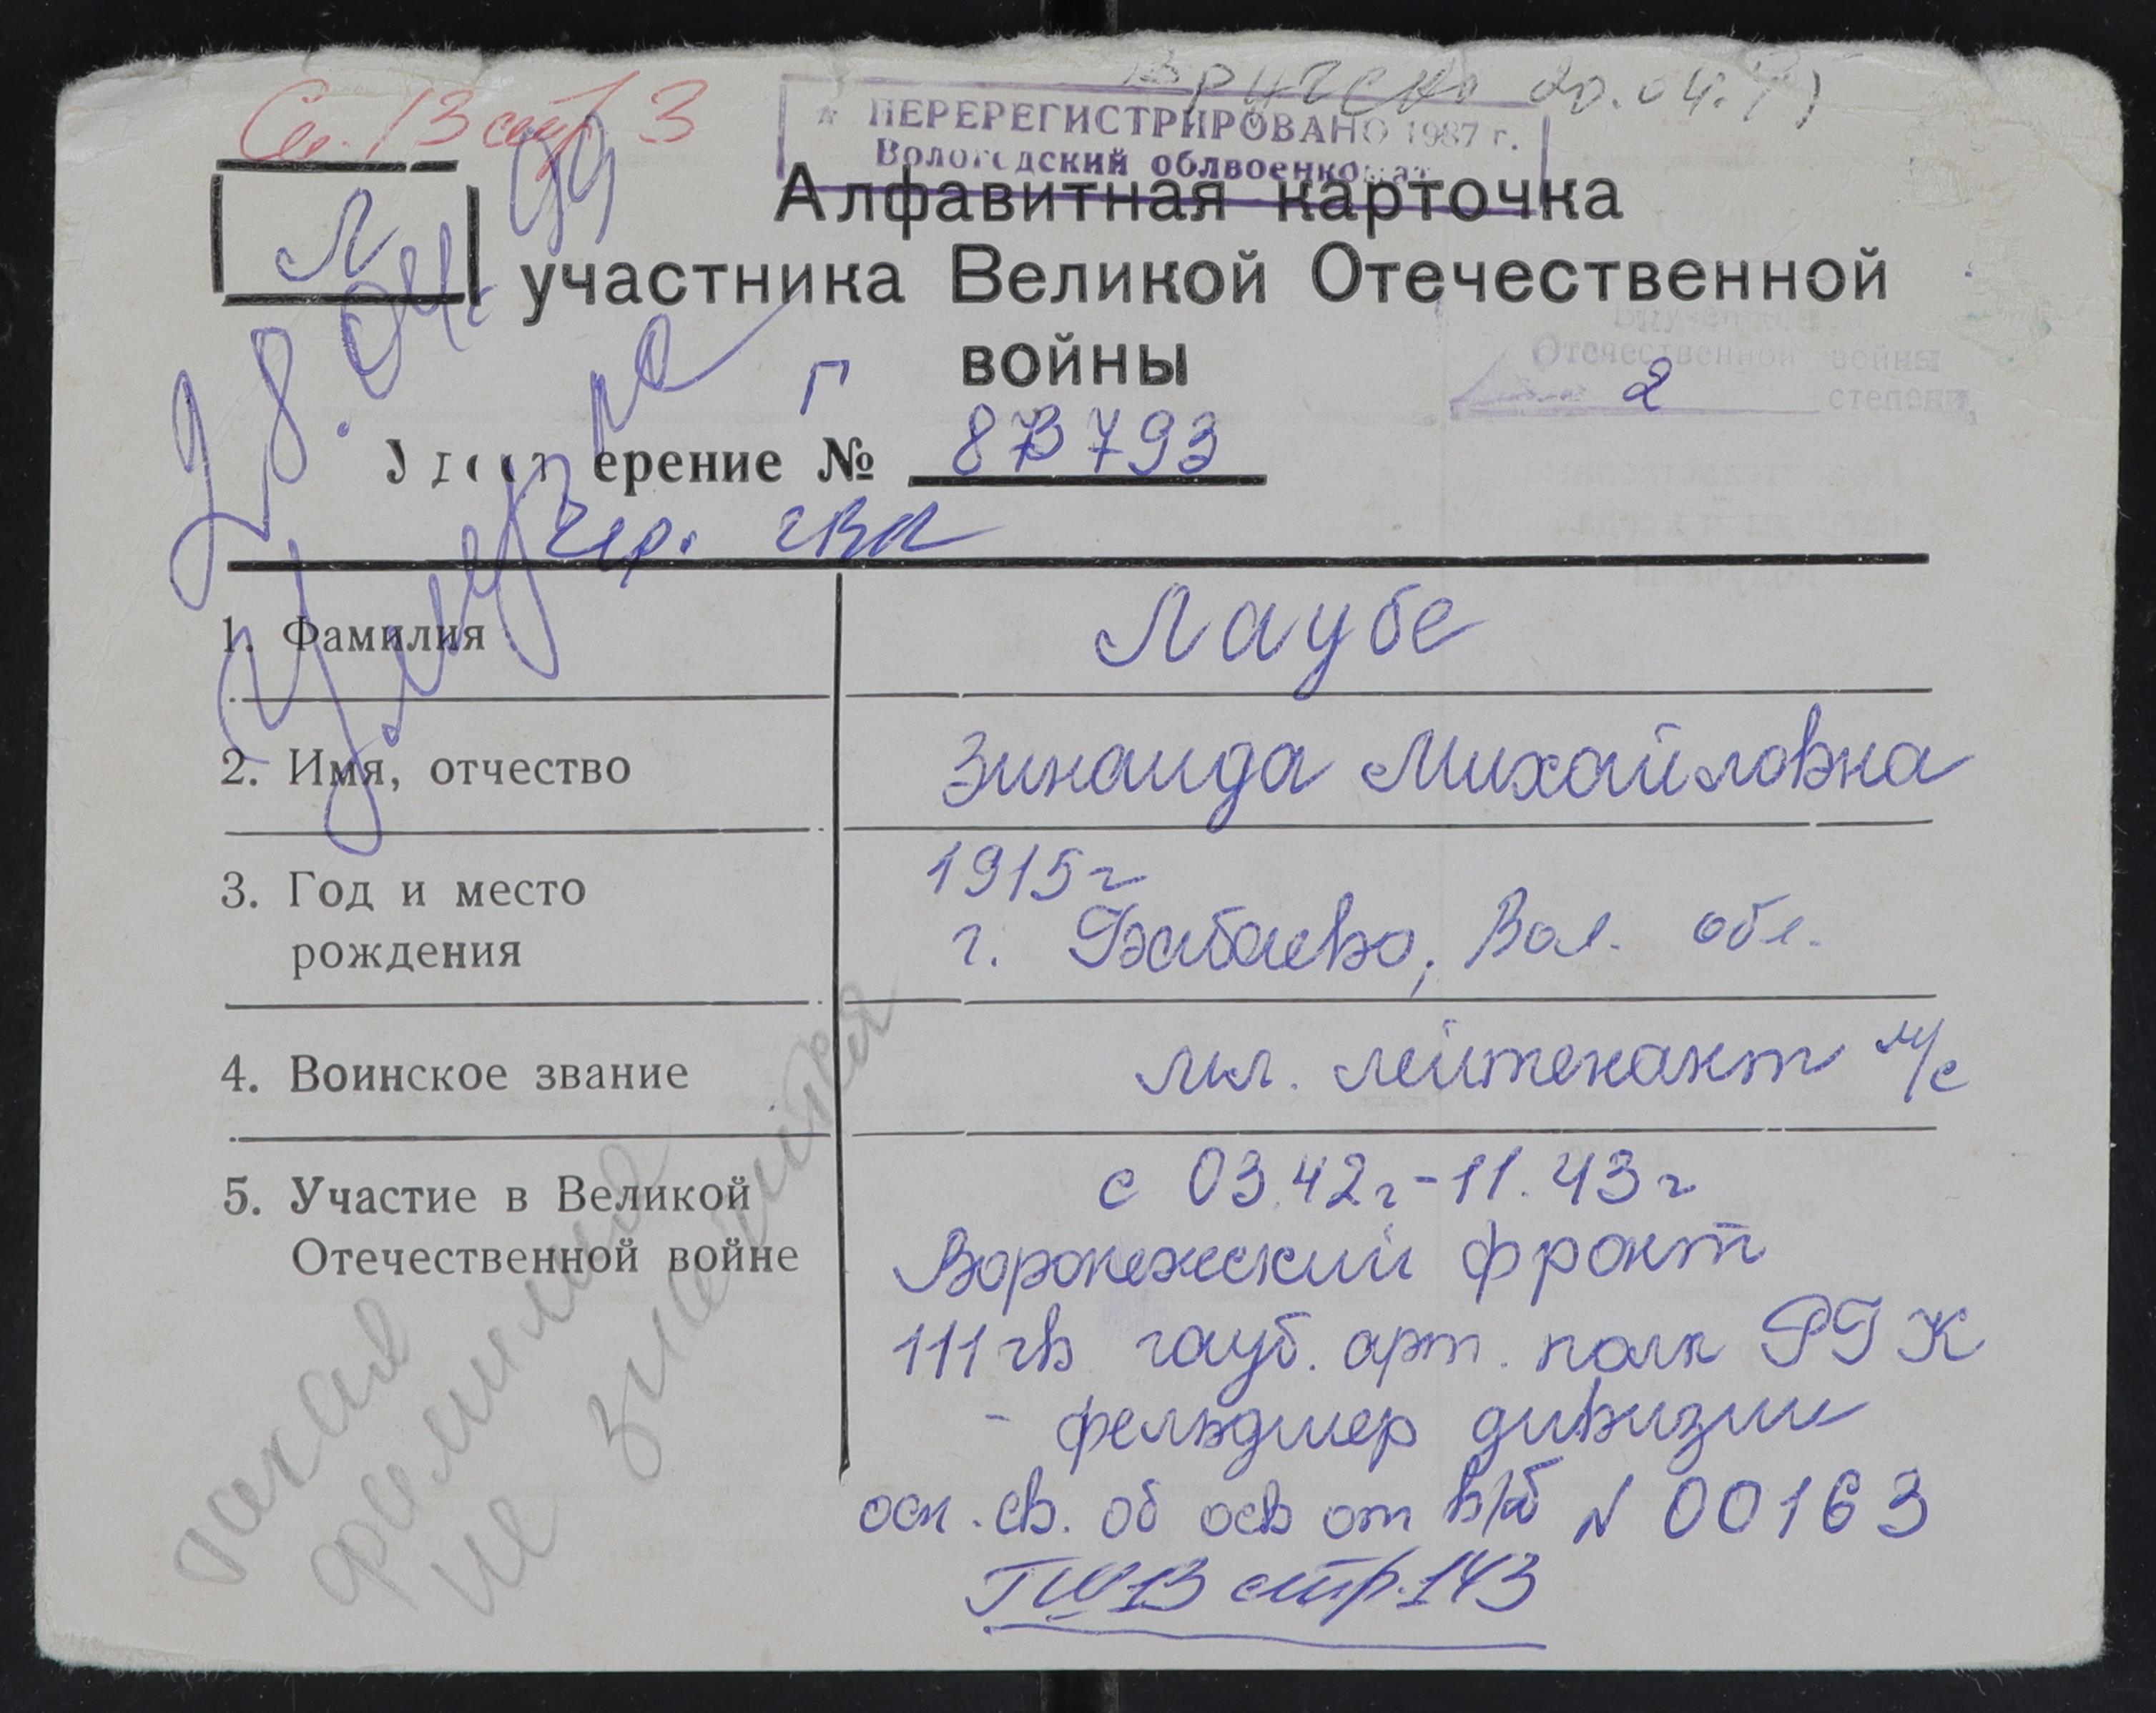 Сп. 13 стр 3
Вручено 20.04.
ПЕРЕРЕГИСТРИРОВАНО 1987 г.
Вологодский облвоенкомат
Л
28.04.99
Умерла
Алфавитная карточка
участника Великой Отечественной
войны
Отечественной войны
2 степени,
Г
Удостоверение № 873793
Чер. ГВК
1. Фамилия Лаубе
2. Имя, отчество Зинаида Михайловна
3. Год и место 1915г
рождения г. Бабаево, Вол. обл.
4. Воинское звание мл. лейтенант м/с
5. Участие в Великой с 03.42г-11.43г
Отечественной войне Воронежский фронт
111 гв гауб. арт. полк РГК
- фельдшер дивизии
осн. св. об осв от в/об N 00163
стр. 143
такая
фамилия
не значится